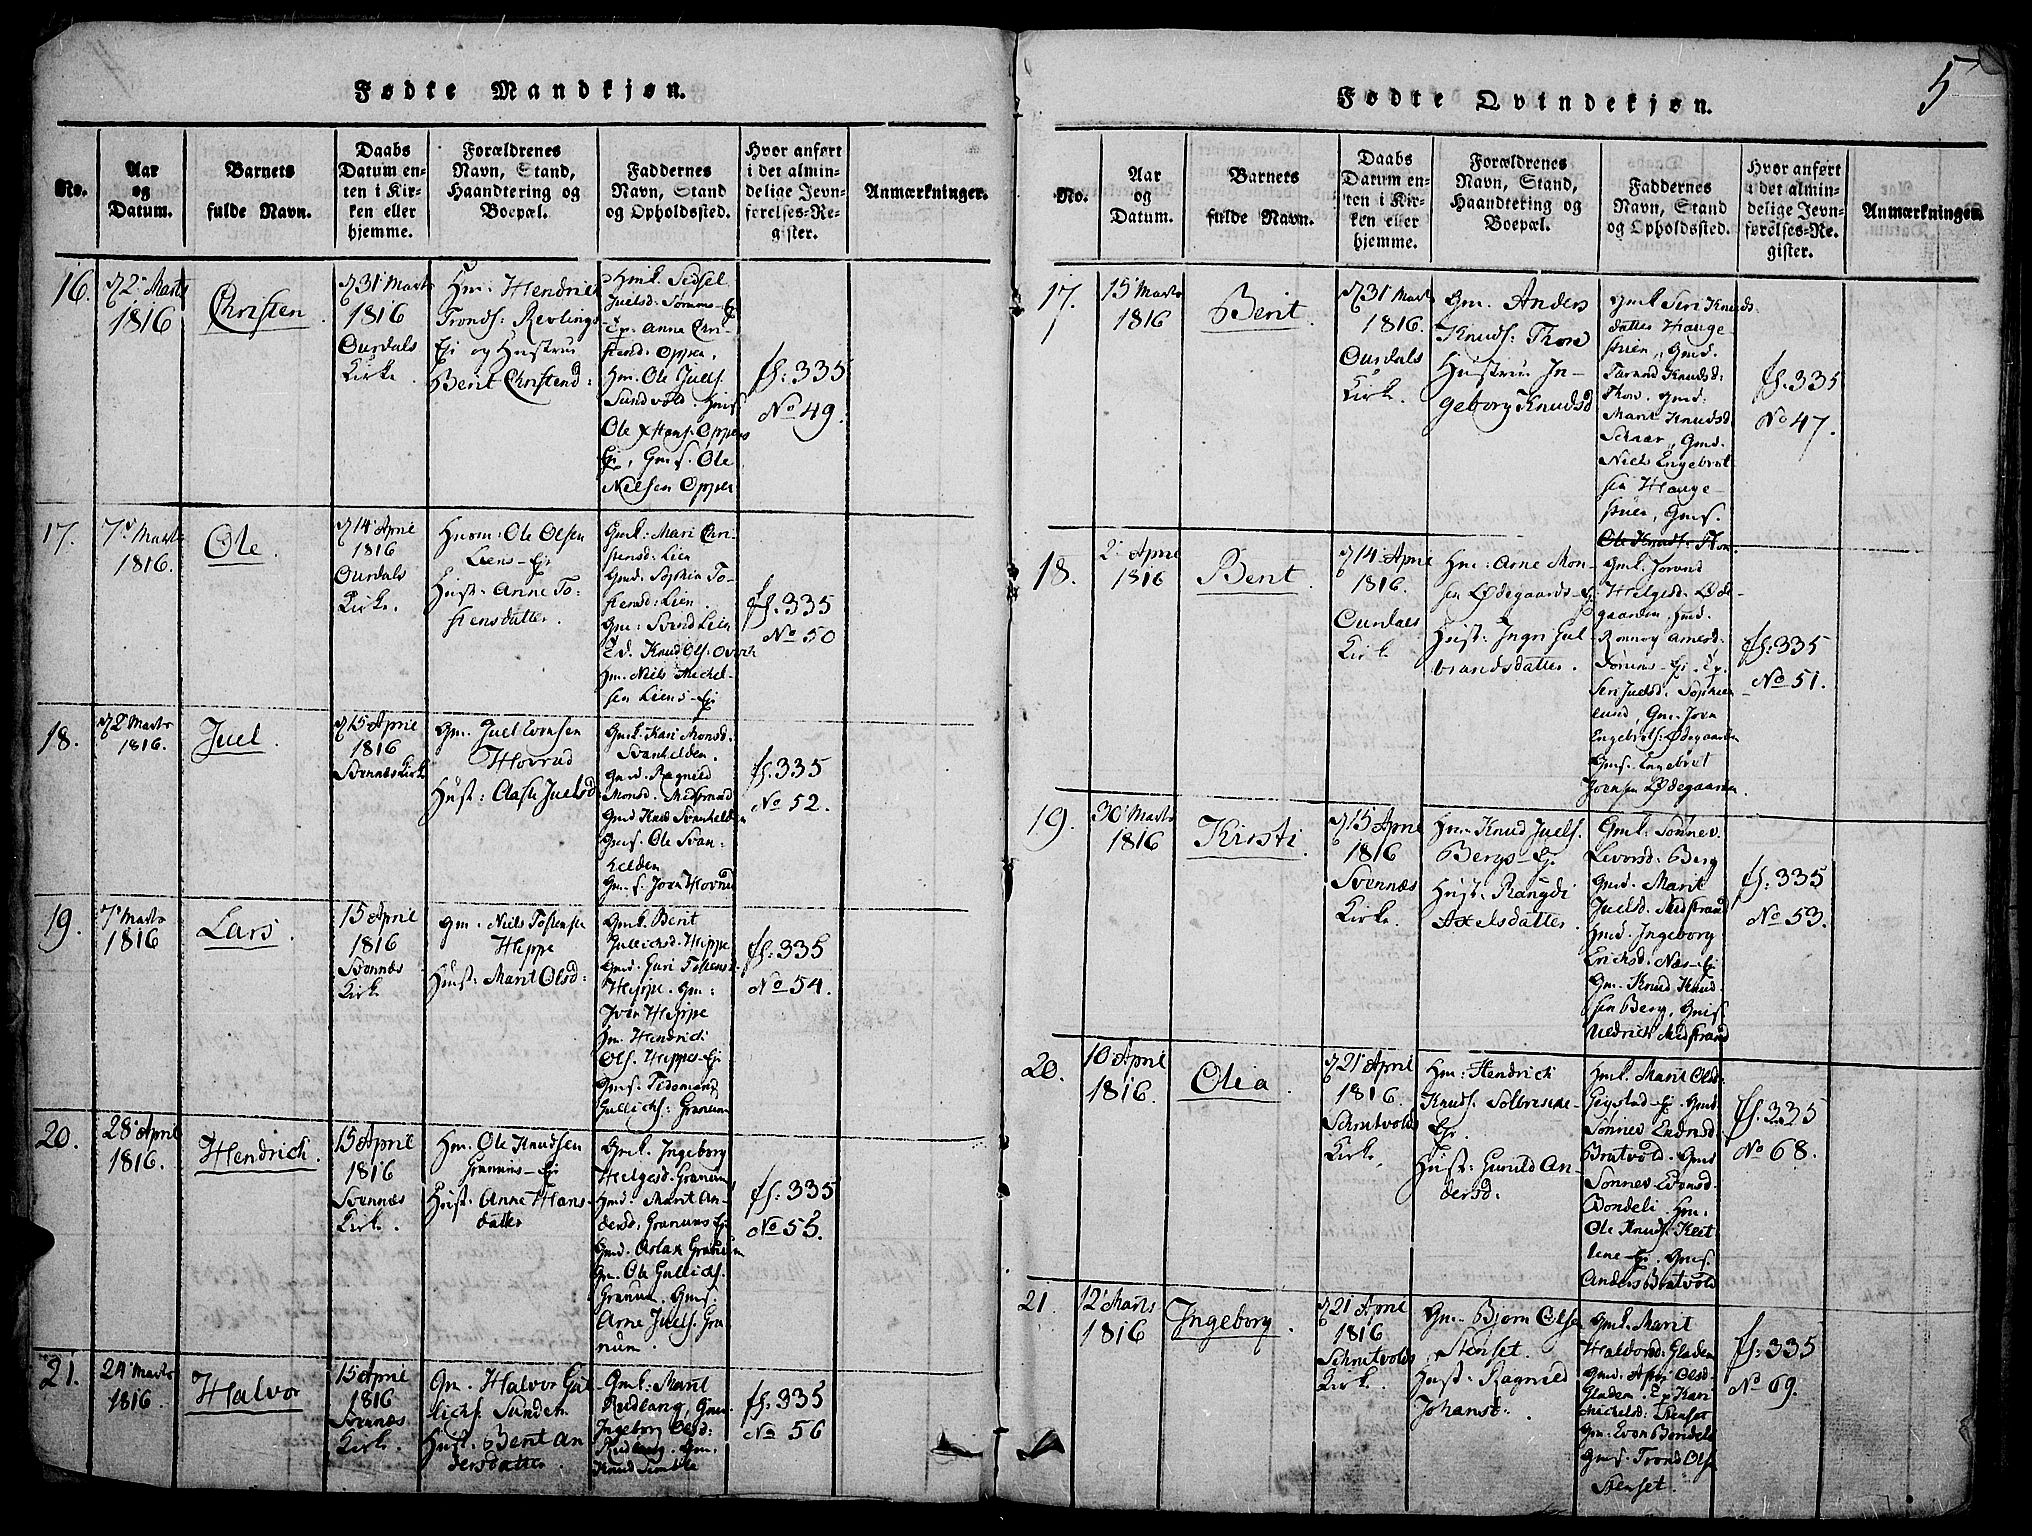 Fødte Mandkjøn.
No.
Aar
og
Datum.
Barnets
fulde Navn.
Daabs
Datum en-
ten i Kir-
ken eller
hjemme.
Forældrenes
Navn, Stand,
Haandtering og
Boepæl.
Faddernes
Navn, Stand
og Opholdssted.
Hvor anført
i det almin-
delige Jevn-
førelses-Re-
gister.
Anmærkninger.
16.
2 Marts
1816
Christen
31 Marts
1816
Ourdals
Kirke.
Hm: Hendrick
Tronds: Revlings-
Ej og Hustrue
Berit Christend:
Gml. Sidsel
Juelsd:
Anna Chri-
stensd: Opper.
Hm. Ole Juels.
Sundvold.
Ole Hans. Oppers
Ej, Gms. Ole
Nielsen Opper
fl: 335
No 49.
17.
7 Marts
1816.
Ole
14 April
1816
Ourdals
Kirke.
Husm: Ole Olsen
Liens-Ej
Hust: Anne To-
stensdatter.
Gml: Mari Chri-
stensd: Lien
Gmd: Sophia To-
stensd: Lien.
Gm: Svend Lien
Knud Ols:
Hm. Niels Michel-
sen Liens-Ej
fl: 335
No 50
18.
2 Marts
1816.
Juel.
15 April
1816
Svennes Kirke
Gm. Juel Evensen
Hovrud
Hust: Aase Juelsd:
Gml. Kari Monsd:
Svanhelden.
Gmd. Ragnild
Monsd: Midstrand
Gmd Knud Svanhelden
Gms. Ole Svan-
helden
Gm. s. Jorn Hovrud
fl. 335
No 52.
19.
7 Marts
1816
Lars.
15 April
1816
Svennæs
Kirke
Gm. Niels Tostensen
Heppe
Hust: Marit Olsd:
Gml. Berit
Gullichsd. Heppe
Gmd. Guri Tostensd:
Heppe. Gm:
Iver Heppe
Hm. Hendrich
Ols. Heppes-Ej
Gms. Tidemand
Gullichs: Granum
fl: 335
No 54.
20.
28 April
1816.
Hendrich.
15 April
1816
Svennæs
Kirke.
Hm. Ole Knudsen
Granums-Ej
Hust: Anne Hans-
datter
Gml. Ingeborg
Helgesd: Granum
Hmd: Marit An-
dersd: Granums Ej
Gmd. Aslak Granum
Gm. Ole Gullichs.
Granum. Gms.
Arne Juels. Gra-
num.
fl: 335
No 55.
21.
24 Marts
1816.
Halvor
15 April
1816
Svennæs
Kirke.
Gm. Halvor Gul-
lichs. Sunden
Hust: Berit An-
dersdatter
Gml: Marit
Rudlang,
Ingeborg Olsd:
Rudlang. Gm.
Knud
fl: 335
No 56
Fødte Qvindekjøn.
5
No.
Aar
og
Datum.
Barnets
fulde Navn.
Daabs
Datum en-
ten i Kir-
ken eller
hjemme.
Forældrenes
Navn, Stand,
Haandtering og
Boepæl.
Faddernes
Navn, Stand
og Opholdssted.
Hvor anført
i det almin-
delige Jevn-
førelses-Re-
gister.
Anmærkninger.
17.
15 Marts
1816
Berit
31 Marts
1816.
Ourdals
Kirke.
Gm. Anders
Knuds: Thon
Hustrue In-
geborg Knudsd
Gml Siri Knuds
datter Hauge
stuen, Gmd.
Knudsd:
Thon. Gmd:
Marit Knudsd:
Schaar, Gmd.
Niels Engebret
sen Hauge-
stuen, Gms.
Ole Knuds: Thon
fl. 335
No 47.
18.
2 April
1816
Berit.
14 April
1816.
Ourdals
Kirke
Hm: Arne Mon-
sen Ødegaards-Ej
Hust: Ingri Gul-
brandsdatter.
Gml. Jorand
Helgesd: Øde-
gaarden, Hmd.
Ronnoy Arnesd:
Siri Juelsd.
Gm. Jorn
Engebrets: Ødegaarden
Gms. Engebret
Jornsen Ødegaarden.
fl: 335
No 51.
19.
30 Marts
1816
Kirsti.
15 April
1816
Svennæs
Kirke.
Hm. Knud Juels.
Bergs-Ej
Hust: Rangdi
Axelsdatter.
Gml: Sønnev
Levorsd: Berg
Gmd. Marit
Juelsd: Midstrand
Hmd. Ingeborg
Erichsd: Næs-Ej
Gm. Knud Knud-
sen Berg, Gms
Uldrich Midstrand
fl: 335
No 53.
20.
10 April
1816.
Olea
21 April
1816.
Schrutvolds
Kirke,
Hm: Hendrich
Knuds.
Ej.
Hust: Gunild An-
dersd:
Hml. Marit Olsd:
Gigstad-Ej. Gmd
Sønnev Endresd:
Bratvold. Gmd
Sønnev Evensd.
Bondeli. Hm.
Ole Knuds:
Ej. Gms.
Anders Bratvold
fl: 335
No 68.
21.
12 Marts
1816
Ingeborg.
21 April
1816
Schrutvolds
Kirke.
Gm. Bjorn Olsen
Stenset.
Hust: Ragnild
Johansd:
Gml. Marit
Halvorsd: Gladem
Olsd:
Gladem. Kari
Michelsd: Stenset
Gm: Even Bondeli
Gms. Trond Olsen
Stenset.
fl: 335
No 69.